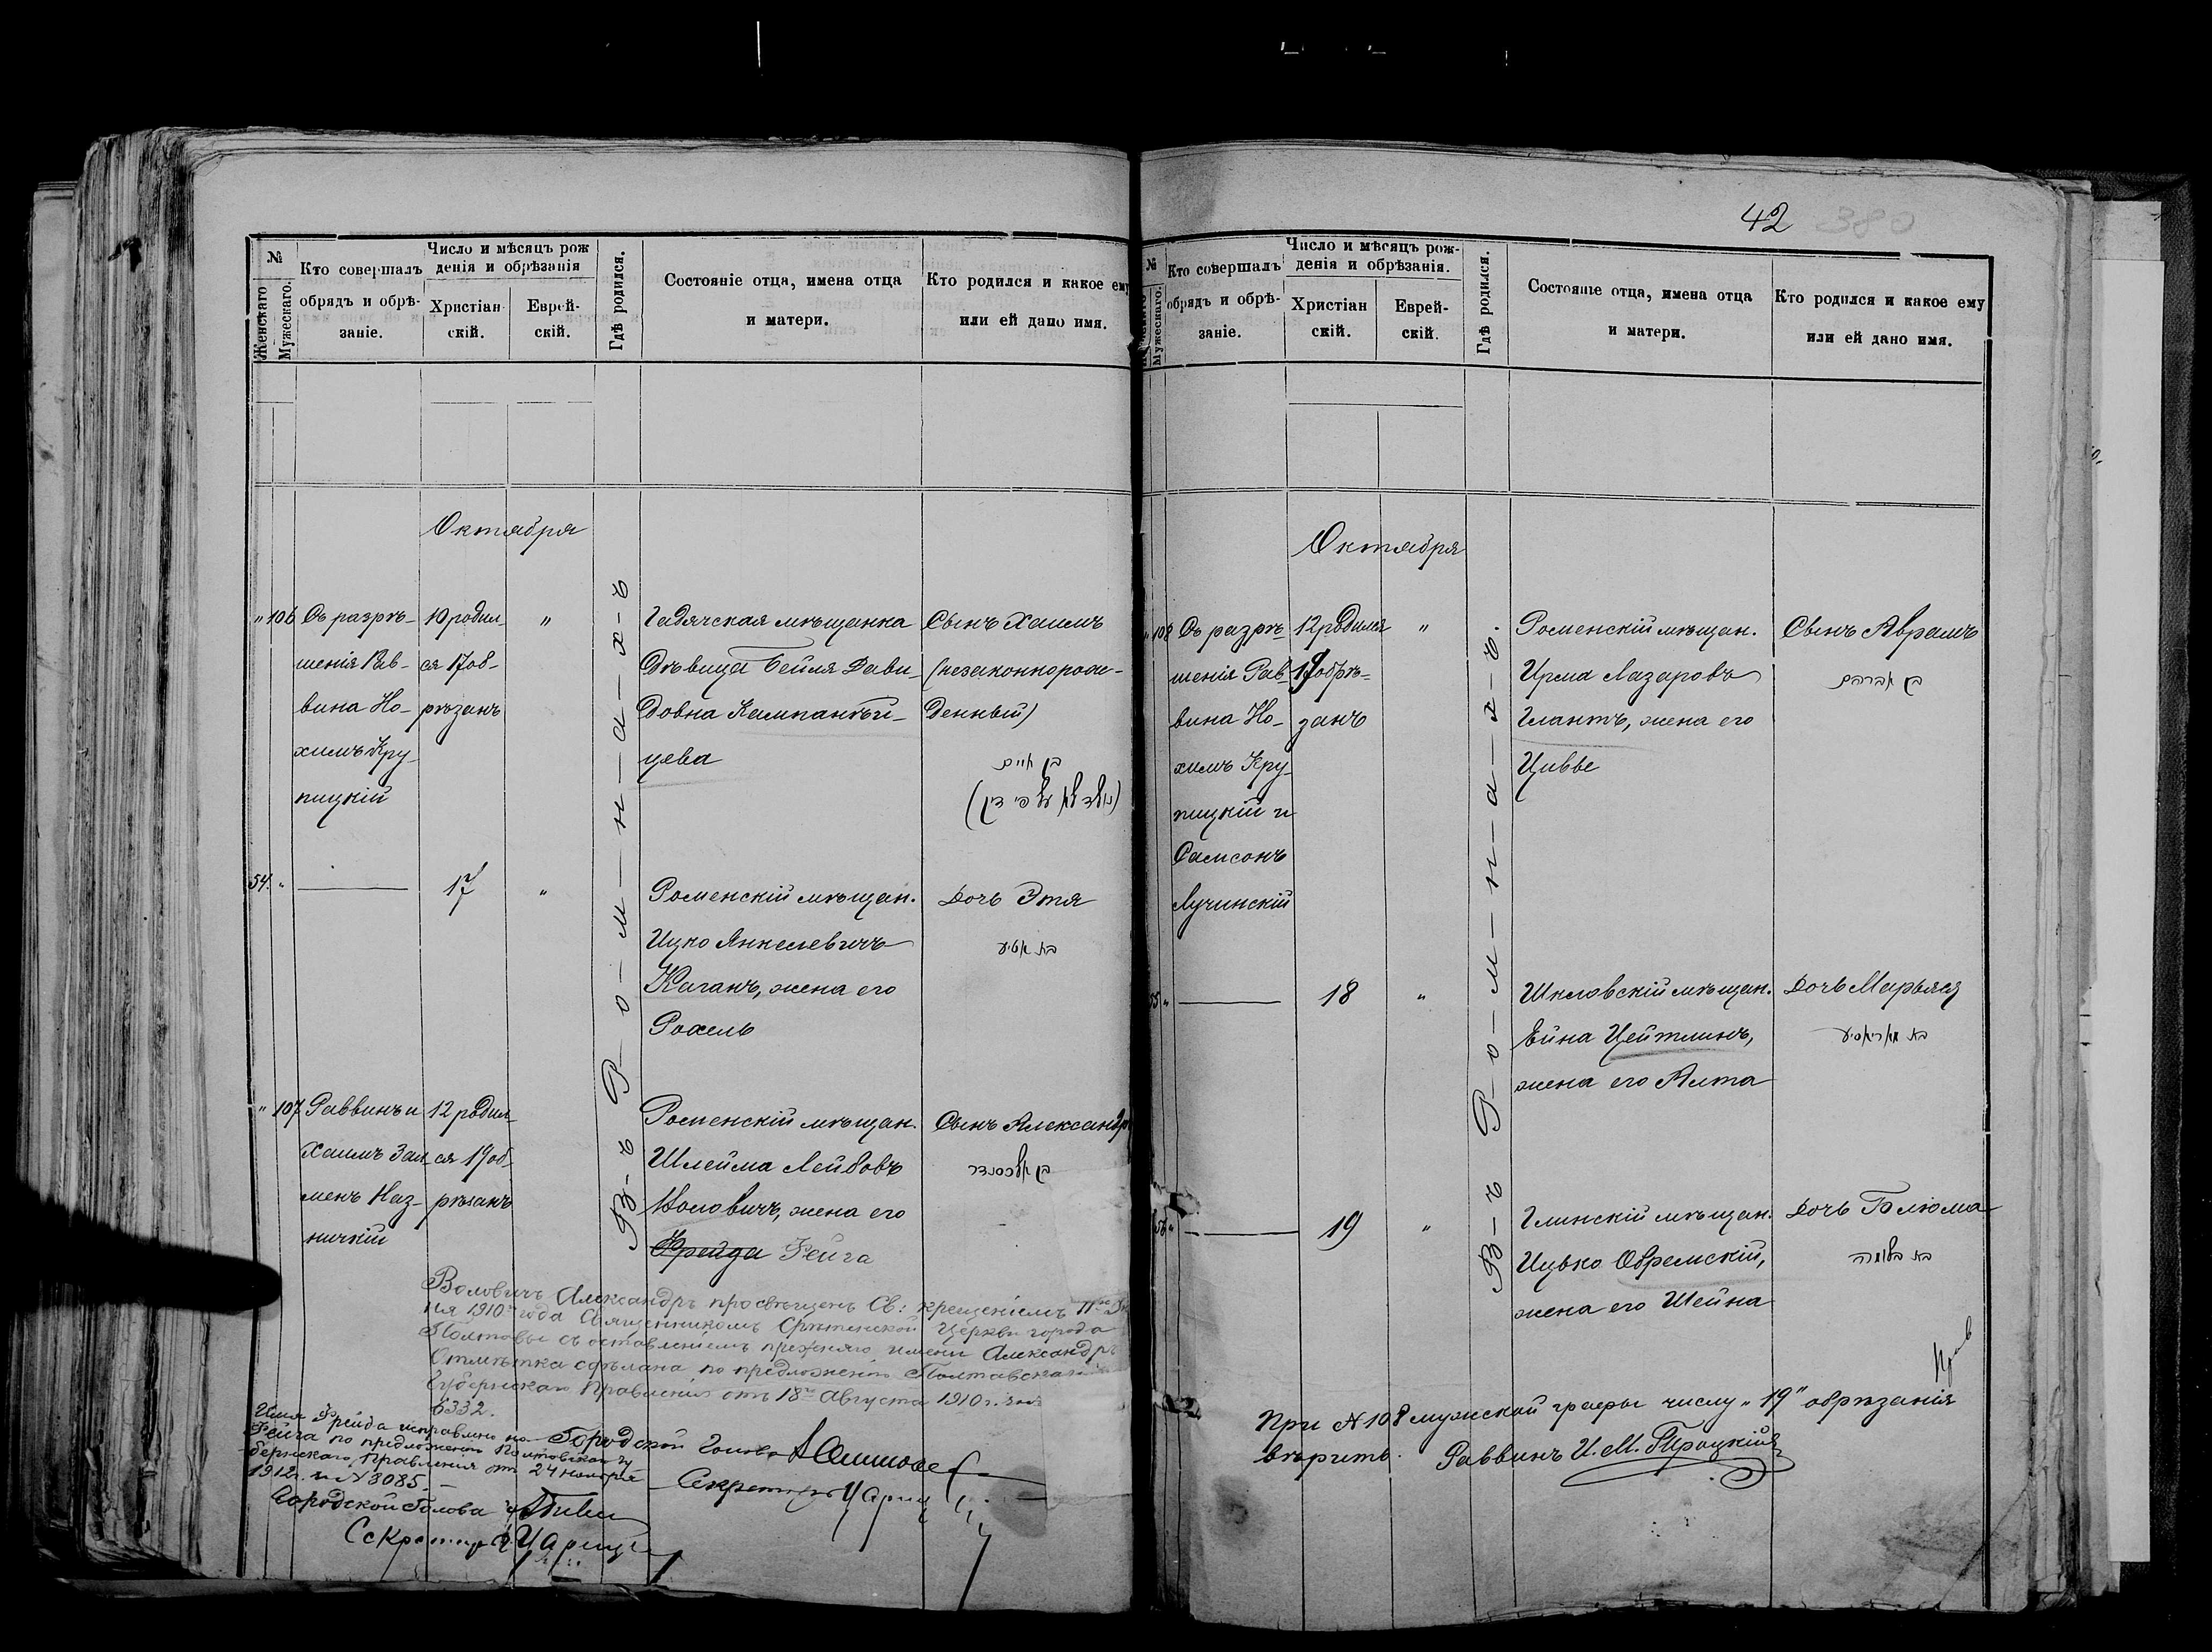 №
Женскаго
Мужескаго.
Кто совершалъ
обрядъ и обрѣ-
заніе.
Число и мѣсяцъ рож
денія и обрѣзанія
Христіан-
скій.
Еврей-
скій.
Гдѣ родился.
Состояніе отца, имена отца
и матери.
Кто родился и какое ему
или ей дано имя.
Октября
" 106
Съ разрѣ-
шенія Рав-
вина Но-
химъ Кру-
пицкій
10 родил-
ся 17 об-
рѣзанъ
"
Гадячская мѣщанка
Дѣвица Бейля Дави-
довна Кампанѣй-
цева
Сынъ Хаимъ
(незаконнорож-
денный)
בן חיים
(נולד שלא על פי דין)
В-ъ Р-о-м-н-а-х-ъ
54. "
17
"
Роменскій мѣщан.
Ицко Янкелевичъ
Каганъ, жена его
Рохель
Дочь Этя
בת אטיע
" 107
Раввинъ и
Хаимъ Зал-
менъ Наз-
ничкій
12 родил-
ся 19 об-
рѣзанъ
Роменскій мѣщан.
Шлейма Лейбовъ
Воловичъ, жена его
Фрейда Фейга
Сынъ Александръ
בן אלכסנדר
Воловичъ Александръ просвѣщенъ Св: крещеніемъ 11го
ня 1910го года Священникомъ Срѣтенской Церкви города
Полтавы съ оставленіемъ прежняго имени Александръ
Отмѣтка сдѣлана по предложенію Полтавскаго
Губернскаго Правленія отъ 18го Августа 1910 г. за №
6332.
Городской Голова
Секретарь
Имя Фрейда исправлено на
Фейга по предложенію Полтавскаго Гу
бернскаго Правленія отъ 24 ноября
1912 г. за № 8085.
Городской Голова
Секретарь
42 380
№
Мужескаго.
Кто совершалъ
обрядъ и обрѣ-
заніе.
Число и мѣсяцъ рож-
денія и обрѣзанія.
Христіан
скій.
Еврей-
скій.
Гдѣ родился.
Состояніе отца, имена отца
и матери.
Кто родился и какое ему
или ей дано имя.
Октября
" 108
Съ разрѣ-
шенія Рав-
вина Но-
химъ Кру-
пицкій и
Самсонъ
Лучинскій
12 родился
19 обрѣ-
занъ
"
Роменскій мѣщан.
Ирма Лазаровъ
Глантъ, жена его
Цивье
Сынъ Аврамъ
בן אברהם
В-ъ Р-о-м-н-а-х-ъ.
55 "
18
"
Шкловскій мѣщан.
Ейна Цейтлинъ,
жена его Алта
Дочь Марьяся
בת מאריאסיע
56 "
19
"
Глинскій мѣщан.
Ицько Обремскій,
жена его Шейна
Дочь Блюма
בת בלומה
При № 108 мужской графы числу „19" обрѣзанія
вѣрить. Раввинъ И. М. Троцкій